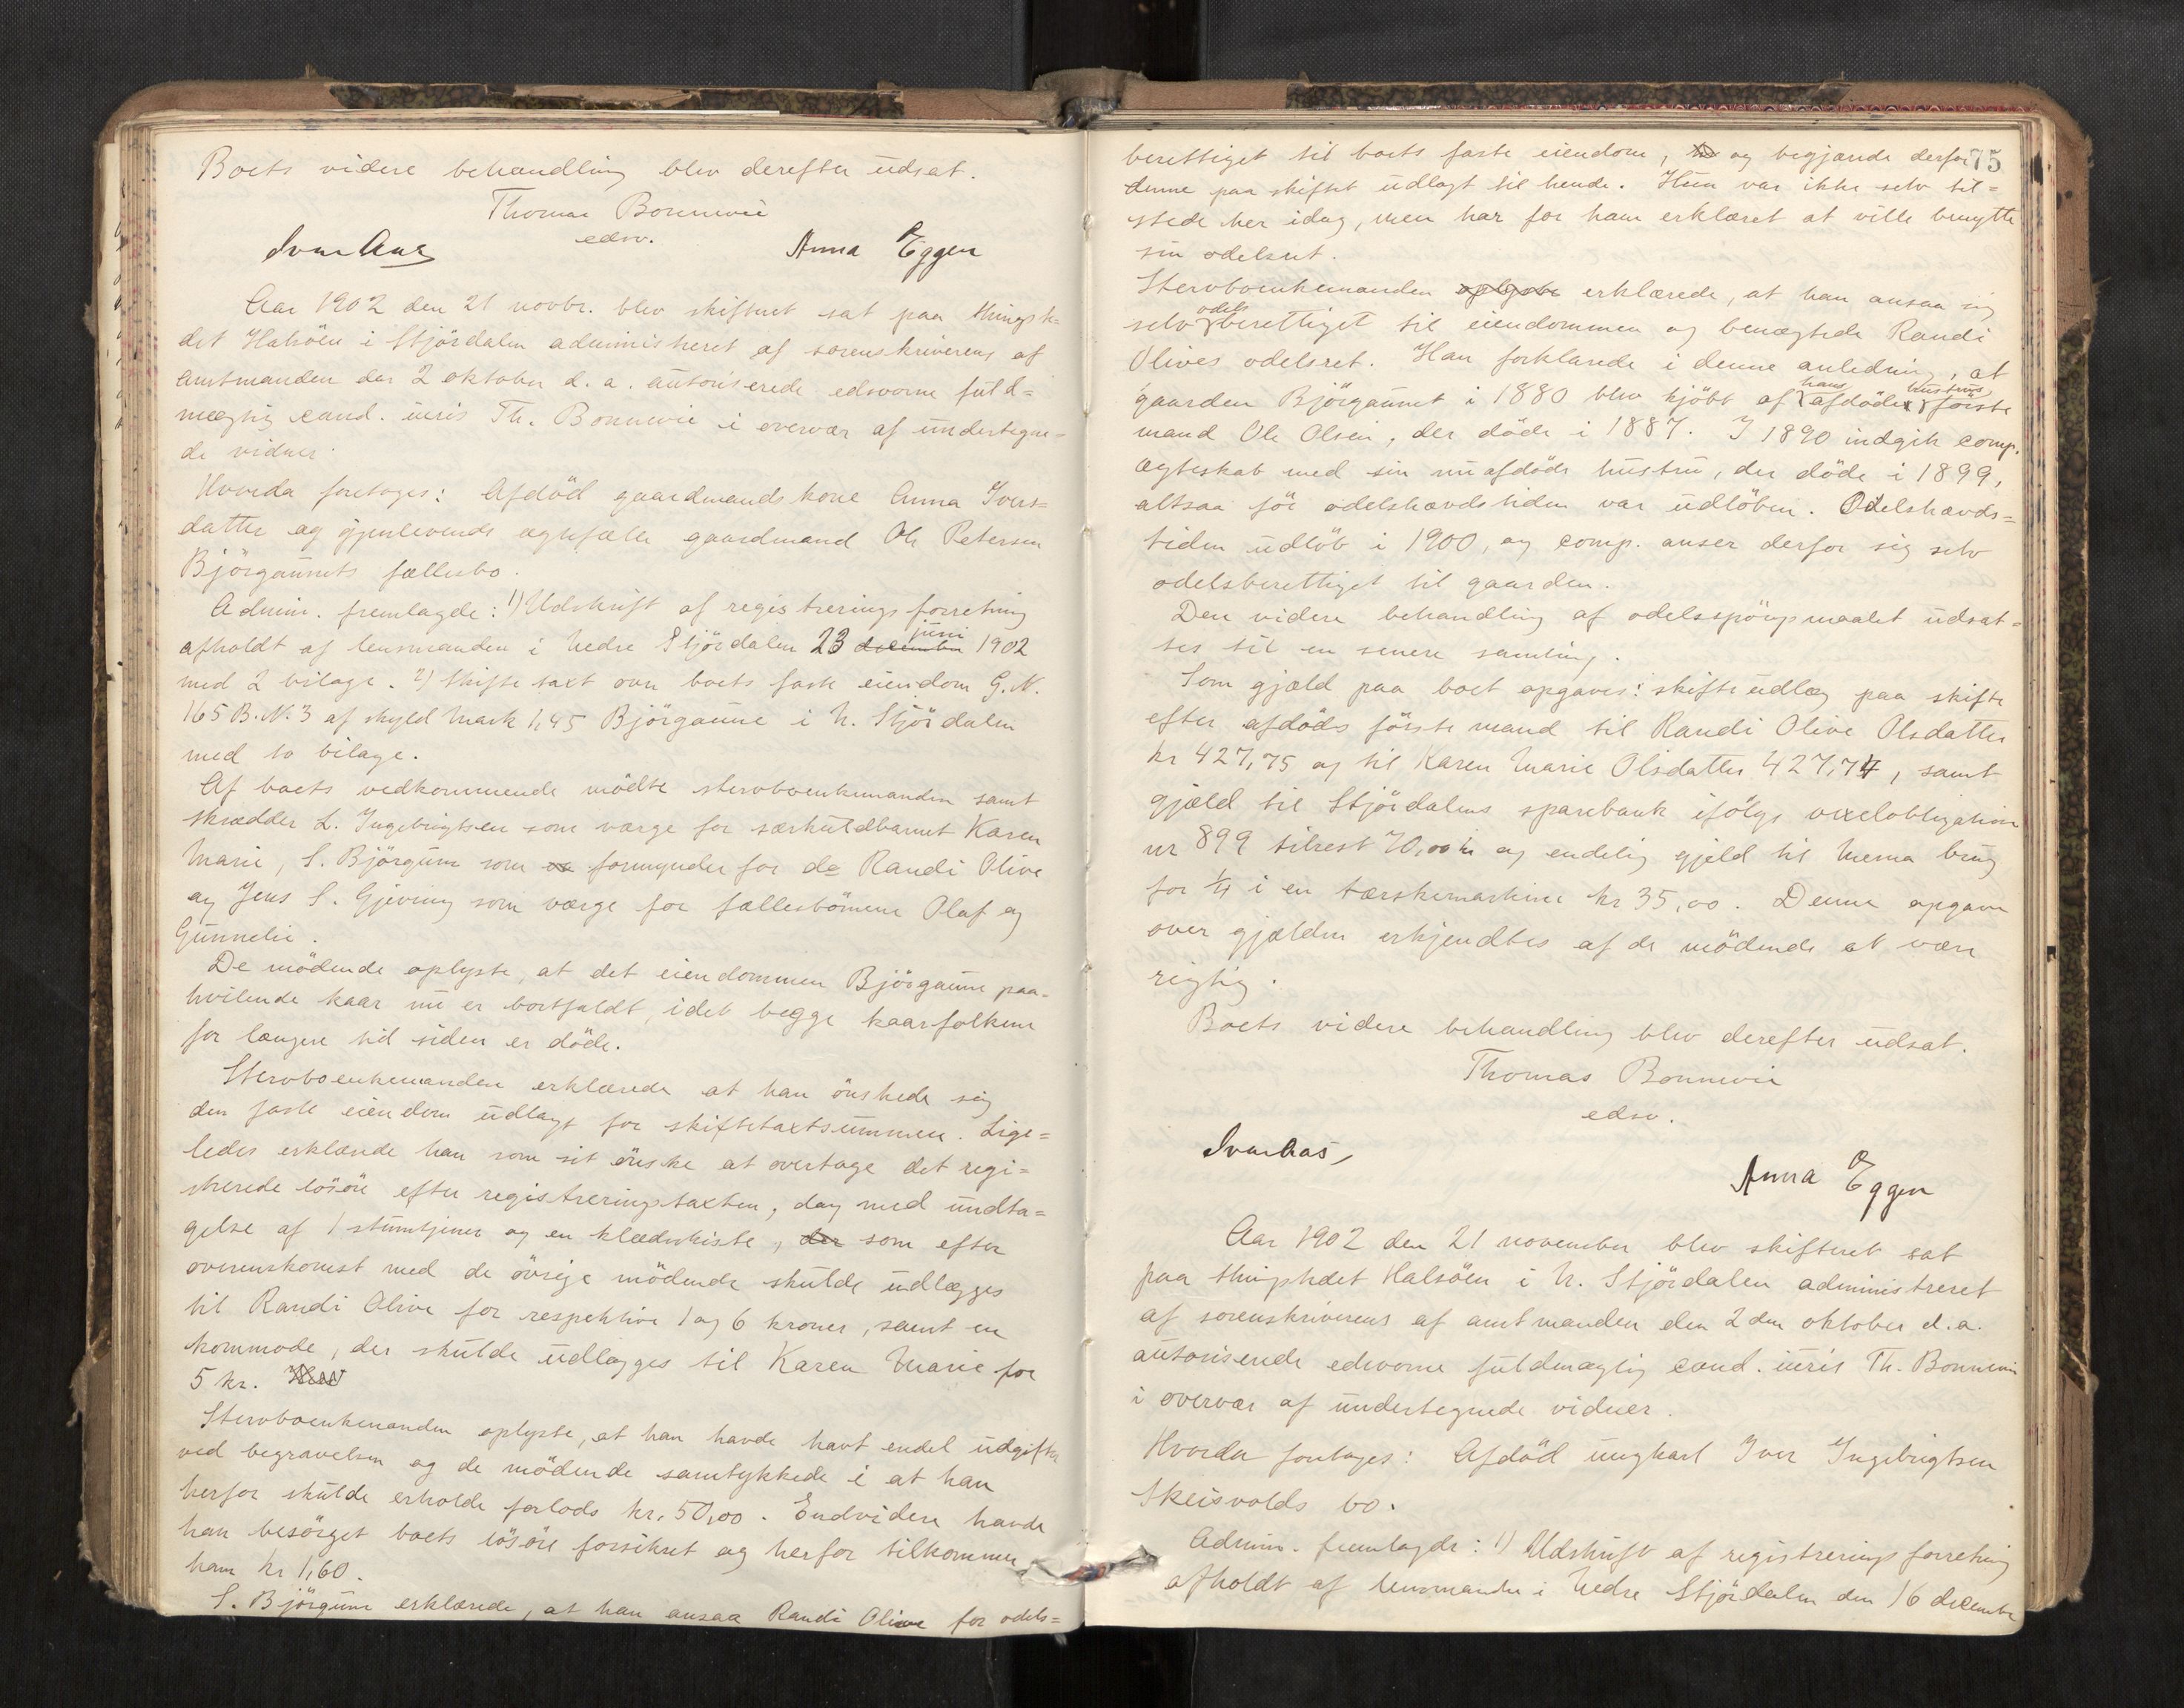 Boets videre behandling blev derefter udsat.
Thomas Bonnevie
edsv.
Ivar Aas Anna Eggen
Aar 1902 den 21 novbr. blev skifteret sat paa thingste-
det Halsöen i Stjördalen administreret af sorenskriverens af
amtmanden den 2 oktober d. a. autoriserede edsvorne fuld=
mægtig cand. iuris Th. Bonnevie i overvær af undertegne-
de vidner.
Hvorda foretoges: Afdöd gaardmandskone Anna Ivers=
datter og gjenlevende ægtefælle gaardmand Ole Petersen
Björgaunets fællesbo.
Admin. fremlagde: 1) Udskrift af registreringsforretning
afholdt af lensmanden i Nedre Stjördalen 23 december juni 1902
med 2 bilage. 2) Skiftetaxt over boets faste eiendom G.N.
165 B.N. 3 af skyld mark 1,45 Björgaune i N. Stjördalen
med to bilage.
Af boets vedkommende mödte stervboenkemanden samt
skrædder L. Ingebrigtsen som værge for særkuldbarnet Karen
Marie, S. Björgum som formynder for do Randi Olive
og Jens S. Gjevring som værge for fællesbörnene Olaf og
Gunnelie.
De mödende oplyste, at det eiendommen Björgaune paa-
hvilende kaar nu er bortfaldt, idet begge kaarfolkene
for længere tid siden er döde.
Stervboenkemanden erklærede at han önskede sig
den faste eiendom udlagt for skiftetaxtsummen. Lige=
ledes erklærede han som sit önske at overtage det regi=
strerede lösöre efter registreringstaxten, dog med undta=
gelse af 1 stumtjener og en klædeskiste, der som efter
overenskomst med de övrige mödende skulde udlægges
til Randi Olive for respektive 1 og 6 kroner, samt en
kommode, der skulde udlægges til Karen Marie for
5 kr.
Stervboenkemanden oplyste, at han havde havt endel udgifter
ved begravelsen og de mödende samtykkede i at han
herfor skulde erholde forlods kr. 50,00. Endvidere havde
han besörget boets lösöre forsikret og herfor tilkommer
ham kr 1,60.
S. Björgum erklærede, at han ansaa Randi Olive for odels=
75
berettiget til boets faste eiendom, og begjærede derfor
denne paa skiftet udlagt til hende. Hun var ikke selv til=
stede her idag, men har for ham erklæret at ville benytte
sin odelsret.
Stervboenkemanden oplyste erklærede, at han ansaa sig
selv odelsberettiget til eiendommen og benægtede Randi
Olives odelsret. Han forklarede i denne anledning, at
gaarden Björgaunet i 1880 blev kjöbt af hans afdöde hustrus förste
mand Ole Olsen, der döde i 1887. I 1890 indgik comp.
ægteskab med sin nu afdöde hustru, der döde i 1899,
altsaa för odelshævdstiden var udlöben. Odelshævds=
tiden udlöb i 1900, og comp. anser derfor sig selv
odelsberettiget til gaarden.
Den videre behandling af odelsspörgsmaalet udsat=
tes til en senere samling.
Som gjæld paa boet opgaves: skifteudlæg paa skifte
efter afdöds förste mand til Randi Olive Olsdatter
kr 427,75 og til Karen Marie Olsdatter 427,74, samt
gjæld til Stjördalens sparebank ifölge vexelobligation
nr 899 tilrest 70,00 kr og endelig gjeld til Mema brug
for 1/4 i en tærskemaskine kr 35,00. Denne opgave
over gjælden erkjendtes af de mödende at være
rigtig.
Boets videre behandling blev derefter udsat.
Thomas Bonnevie
edsv.
Ivar Aas
Anna Eggen
Aar 1902 den 21 november blev skifteret sat
paa thingstedet Halsöen i N. Stjördalen administreret
af sorenskriverens af amtmanden den 2den oktober d.a.
autoriserede edsvorne fuldmægtig cand. iuris Th. Bonnevie
i overvær af undertegnede vidner.
Hvorda foretoges: Afdöd ungkarl Iver Ingebrigtsen
Skeisvolds bo.
Admin. fremlagde: 1) Udskrift af registreringsforretning
afholdt af lensmanden i Nedre Stjördalen den 16 december